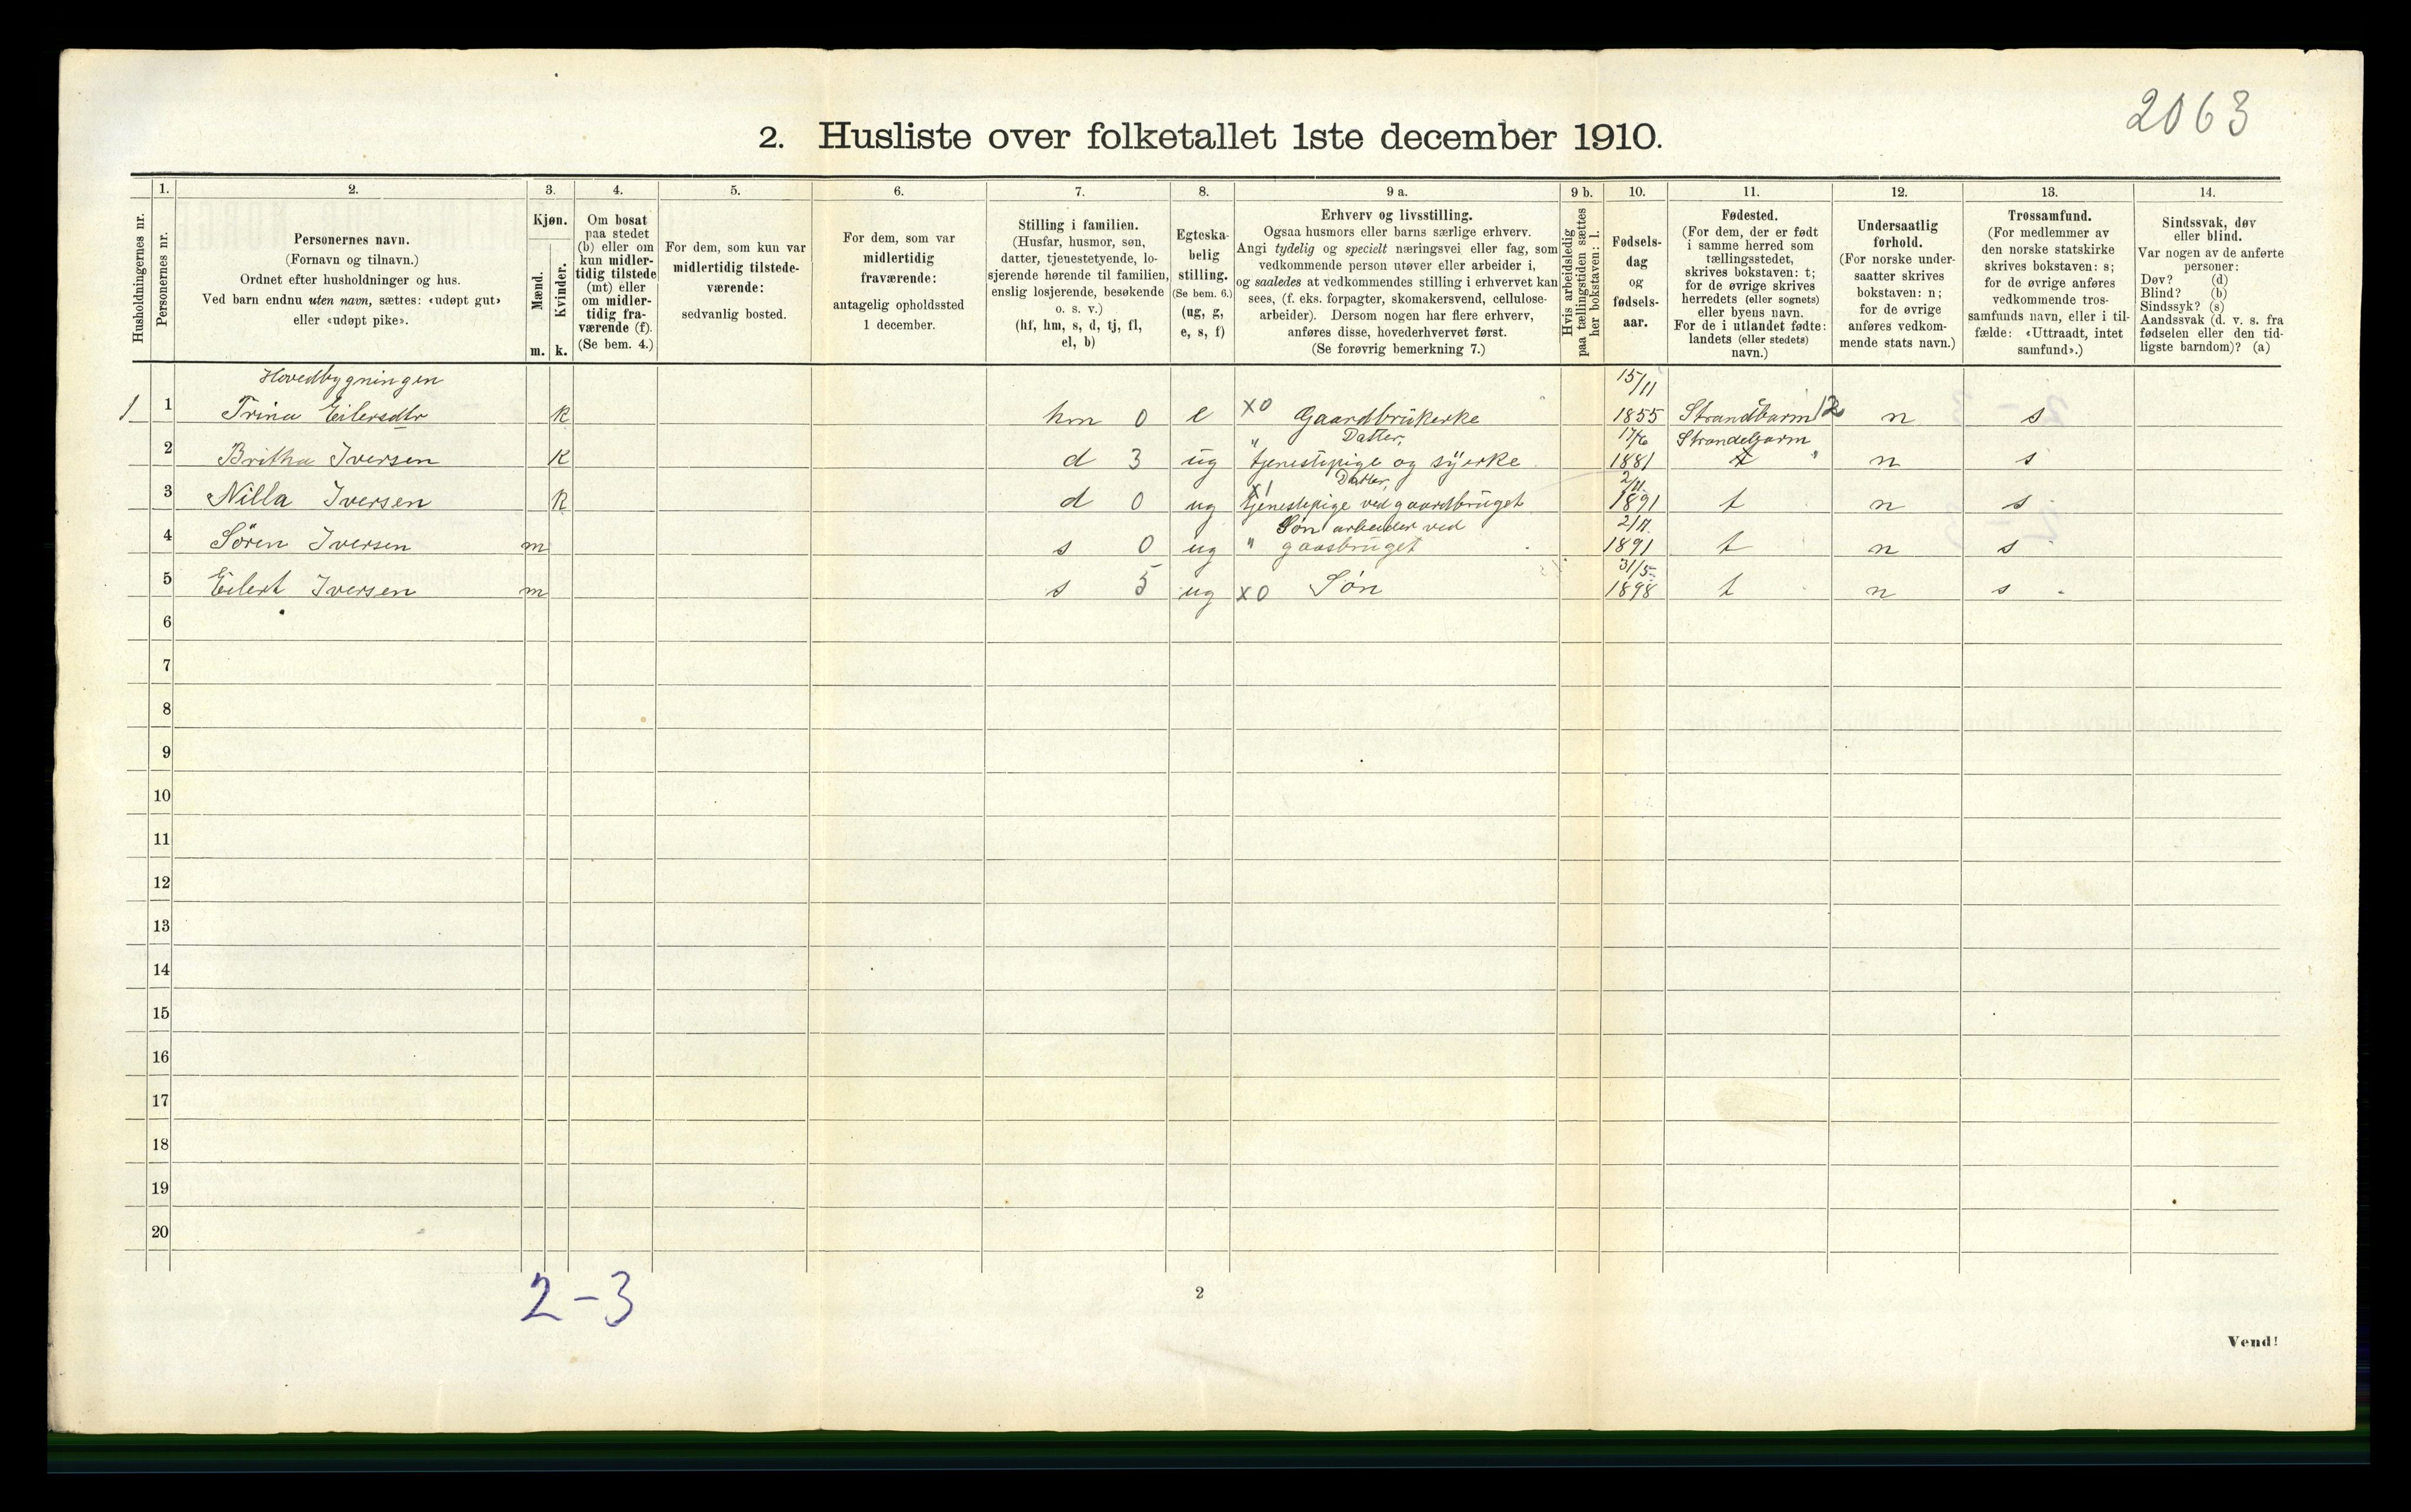 2063
2. Husliste over folketallet 1ste december 1910.
Husholdningernes nr.
1.
Personernes nr.
2.
Personernes navn.
(Fornavn og tilnavn.)
Ordnet efter husholdninger og hus.
Ved barn endnu uten navn, sættes: «udøpt gut»
eller «udøpt pike».
3.
Kjøn.
Mænd.
Kvinder.
m. k.
4.
Om bosat
paa stedet
(b) eller om
kun midler-
tidig tilstede
(mt) eller
om midler-
tidig fra-
værende (f).
(Se bem. 4.)
5.
For dem, som kun var
midlertidig tilstede-
værende:
sedvanlig bosted.
6.
For dem, som var
midlertidig
fraværende:
antagelig opholdssted
1 december.
7.
Stilling i familien.
(Husfar, husmor, søn,
datter, tjenestetyende, lo-
sjerende hørende til familien,
enslig losjerende, besøkende
o. s. v.)
(hf, hm, s, d, tj, fl,
el, b)
8.
Egteska-
belig
stilling.
(Se bem. 6.)
(ug, g,
e, s, f)
9 a.
Erhverv og livsstilling.
Ogsaa husmors eller barns særlige erhverv.
Angi tydelig og specielt næringsvei eller fag, som
vedkommende person utøver eller arbeider i,
og saaledes at vedkommendes stilling i erhvervet kan
sees, (f. eks. forpagter, skomakersvend, cellulose-
arbeider). Dersom nogen har flere erhverv,
anføres disse, hovederhvervet først.
(Se forøvrig bemerkning 7.)
9 b.
Hvis arbeidsledig
paa tællingstiden sættes
her bokstaven: l.
10.
Fødsels-
dag
og
fødsels-
aar.
11.
Fødested.
(For dem, der er født
i samme herred som
tællingsstedet,
skrives bokstaven: t;
for de øvrige skrives
herredets (eller sognets)
eller byens navn.
For de i utlandet fødte:
landets (eller stedets)
navn.)
12.
Undersaatlig
forhold.
(For norske under-
saatter skrives
bokstaven: n;
for de øvrige
anføres vedkom-
mende stats navn.)
13.
Trossamfund.
(For medlemmer av
den norske statskirke
skrives bokstaven: s;
for de øvrige anføres
vedkommende tros-
samfunds navn, eller i til-
fælde: «Uttraadt, intet
samfund».)
14.
Sindssvak, døv
eller blind.
Var nogen av de anførte
personer:
Døv? (d)
Blind? (b)
Sindssyk? (s)
Aandssvak (d. v. s. fra
fødselen eller den tid-
ligste barndom)? (a)
Hovedbygningen 15/11
1 1 Trina Eilersdtr k hm 0 e x0 Gaardbrukerke 1855 Strandbarm 12 n s
" Datter, 17/6 Strandebarm
2 Britha Iversen k d 3 ug tjenestepige og syerke 1881 t " n s
x1 Datter, 2/11.
3 Nilla Iversen k d 0 ug tjenestepige ved gaardbruget 1891 t n s
Søn arbeider ved 2/11.
4 Sören Iversen m s 0 ug " gaasbruget 1891 t n s
31/5.
5 Eilert Iversen m s 5 ug x0 Søn 1898 t n s
6
7
8
9
10
11
12
13
14
15
16
17
18
19
20
2-3
2
Vend!